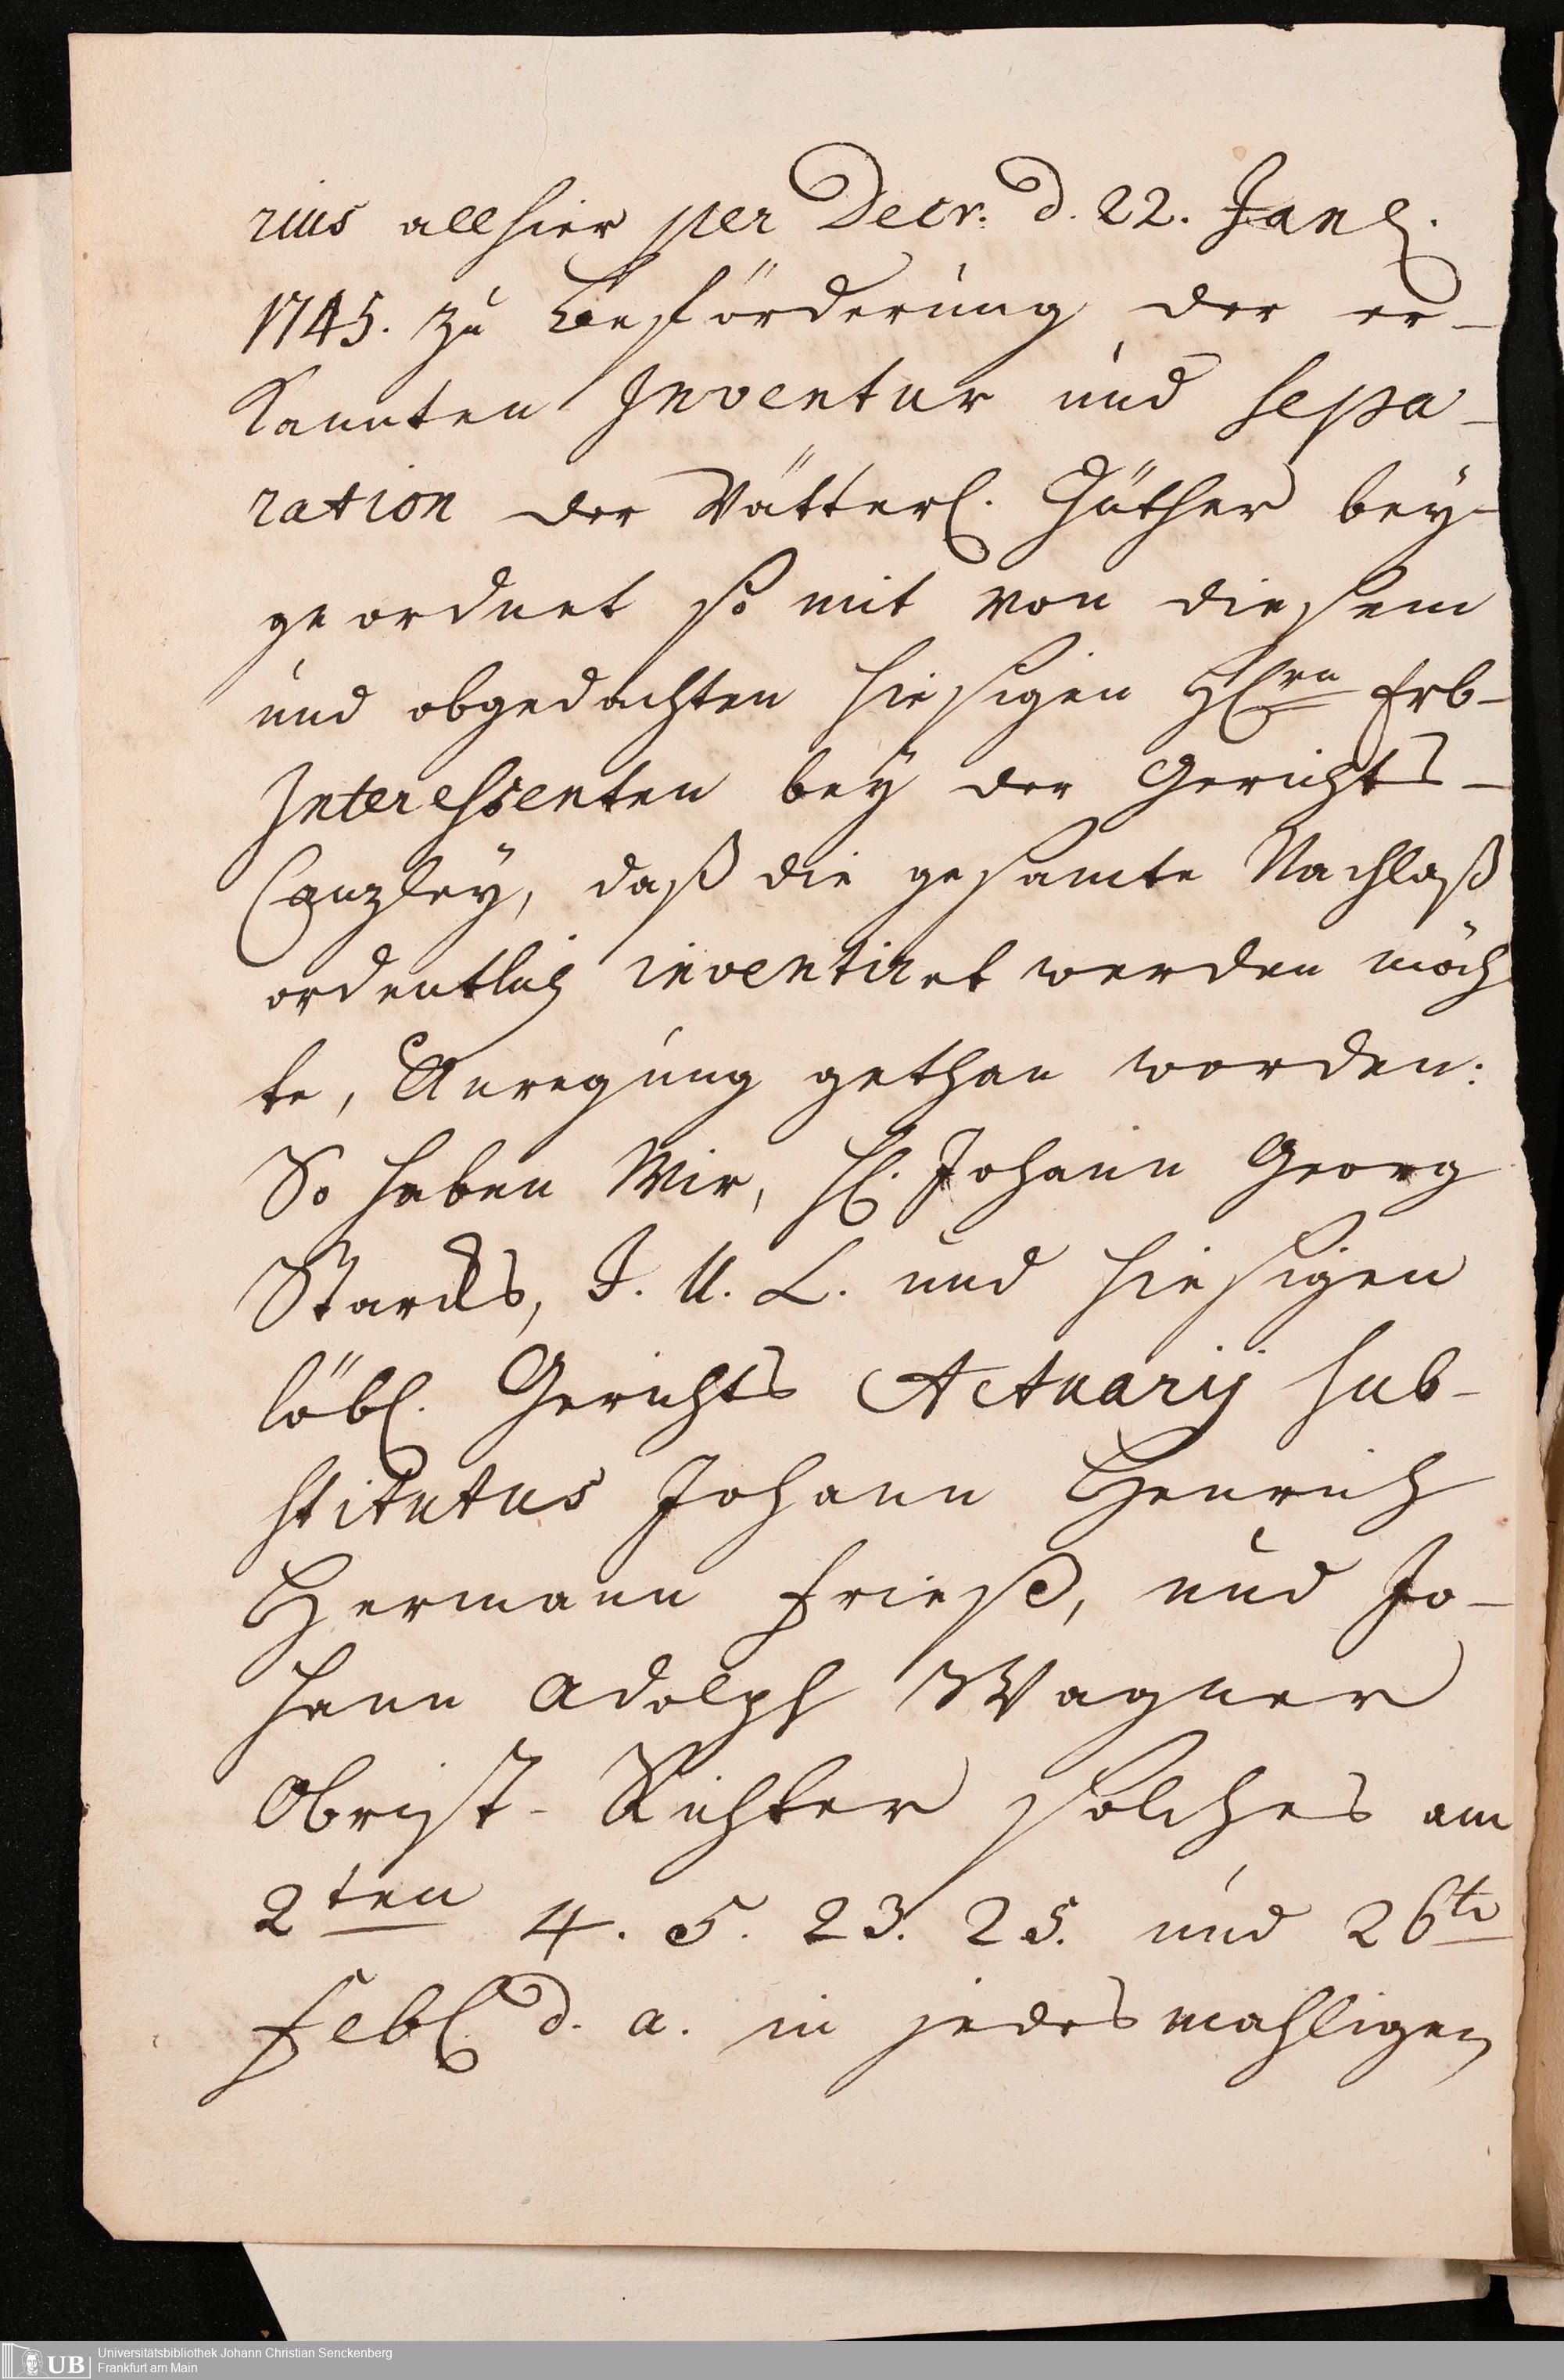 rius allhier per Decr: d. 22. Janl.
1745. zu Beförderung der er-
kannten Inventur und sepa-
ration der Vätterl. Güther bey-
geordnet so mit von diesem
und obgedachten hiesigen HErrn Erb-
Interessenten bey der Gerichts-
Canzley, daß die gesamte Nachlaß
ordentlich inventiret werden möch
te, Anregung gethan worden:
So haben Wir, H. Johann Georg
Starcks, J. U. L. und hiesigen
löbl. Gerichts Actuarij sub-
stitutus Johann Henrich
Hermann Frieß, und Jo-
hann Adolph Wagner
Obrist-Richter solches am
2ten 4. 5. 23. 25. und 26te
Febl. d. a. in jedesmahligen
UB Universitätsbibliothek Johann Christian Senckenberg
Frankfurt am Main